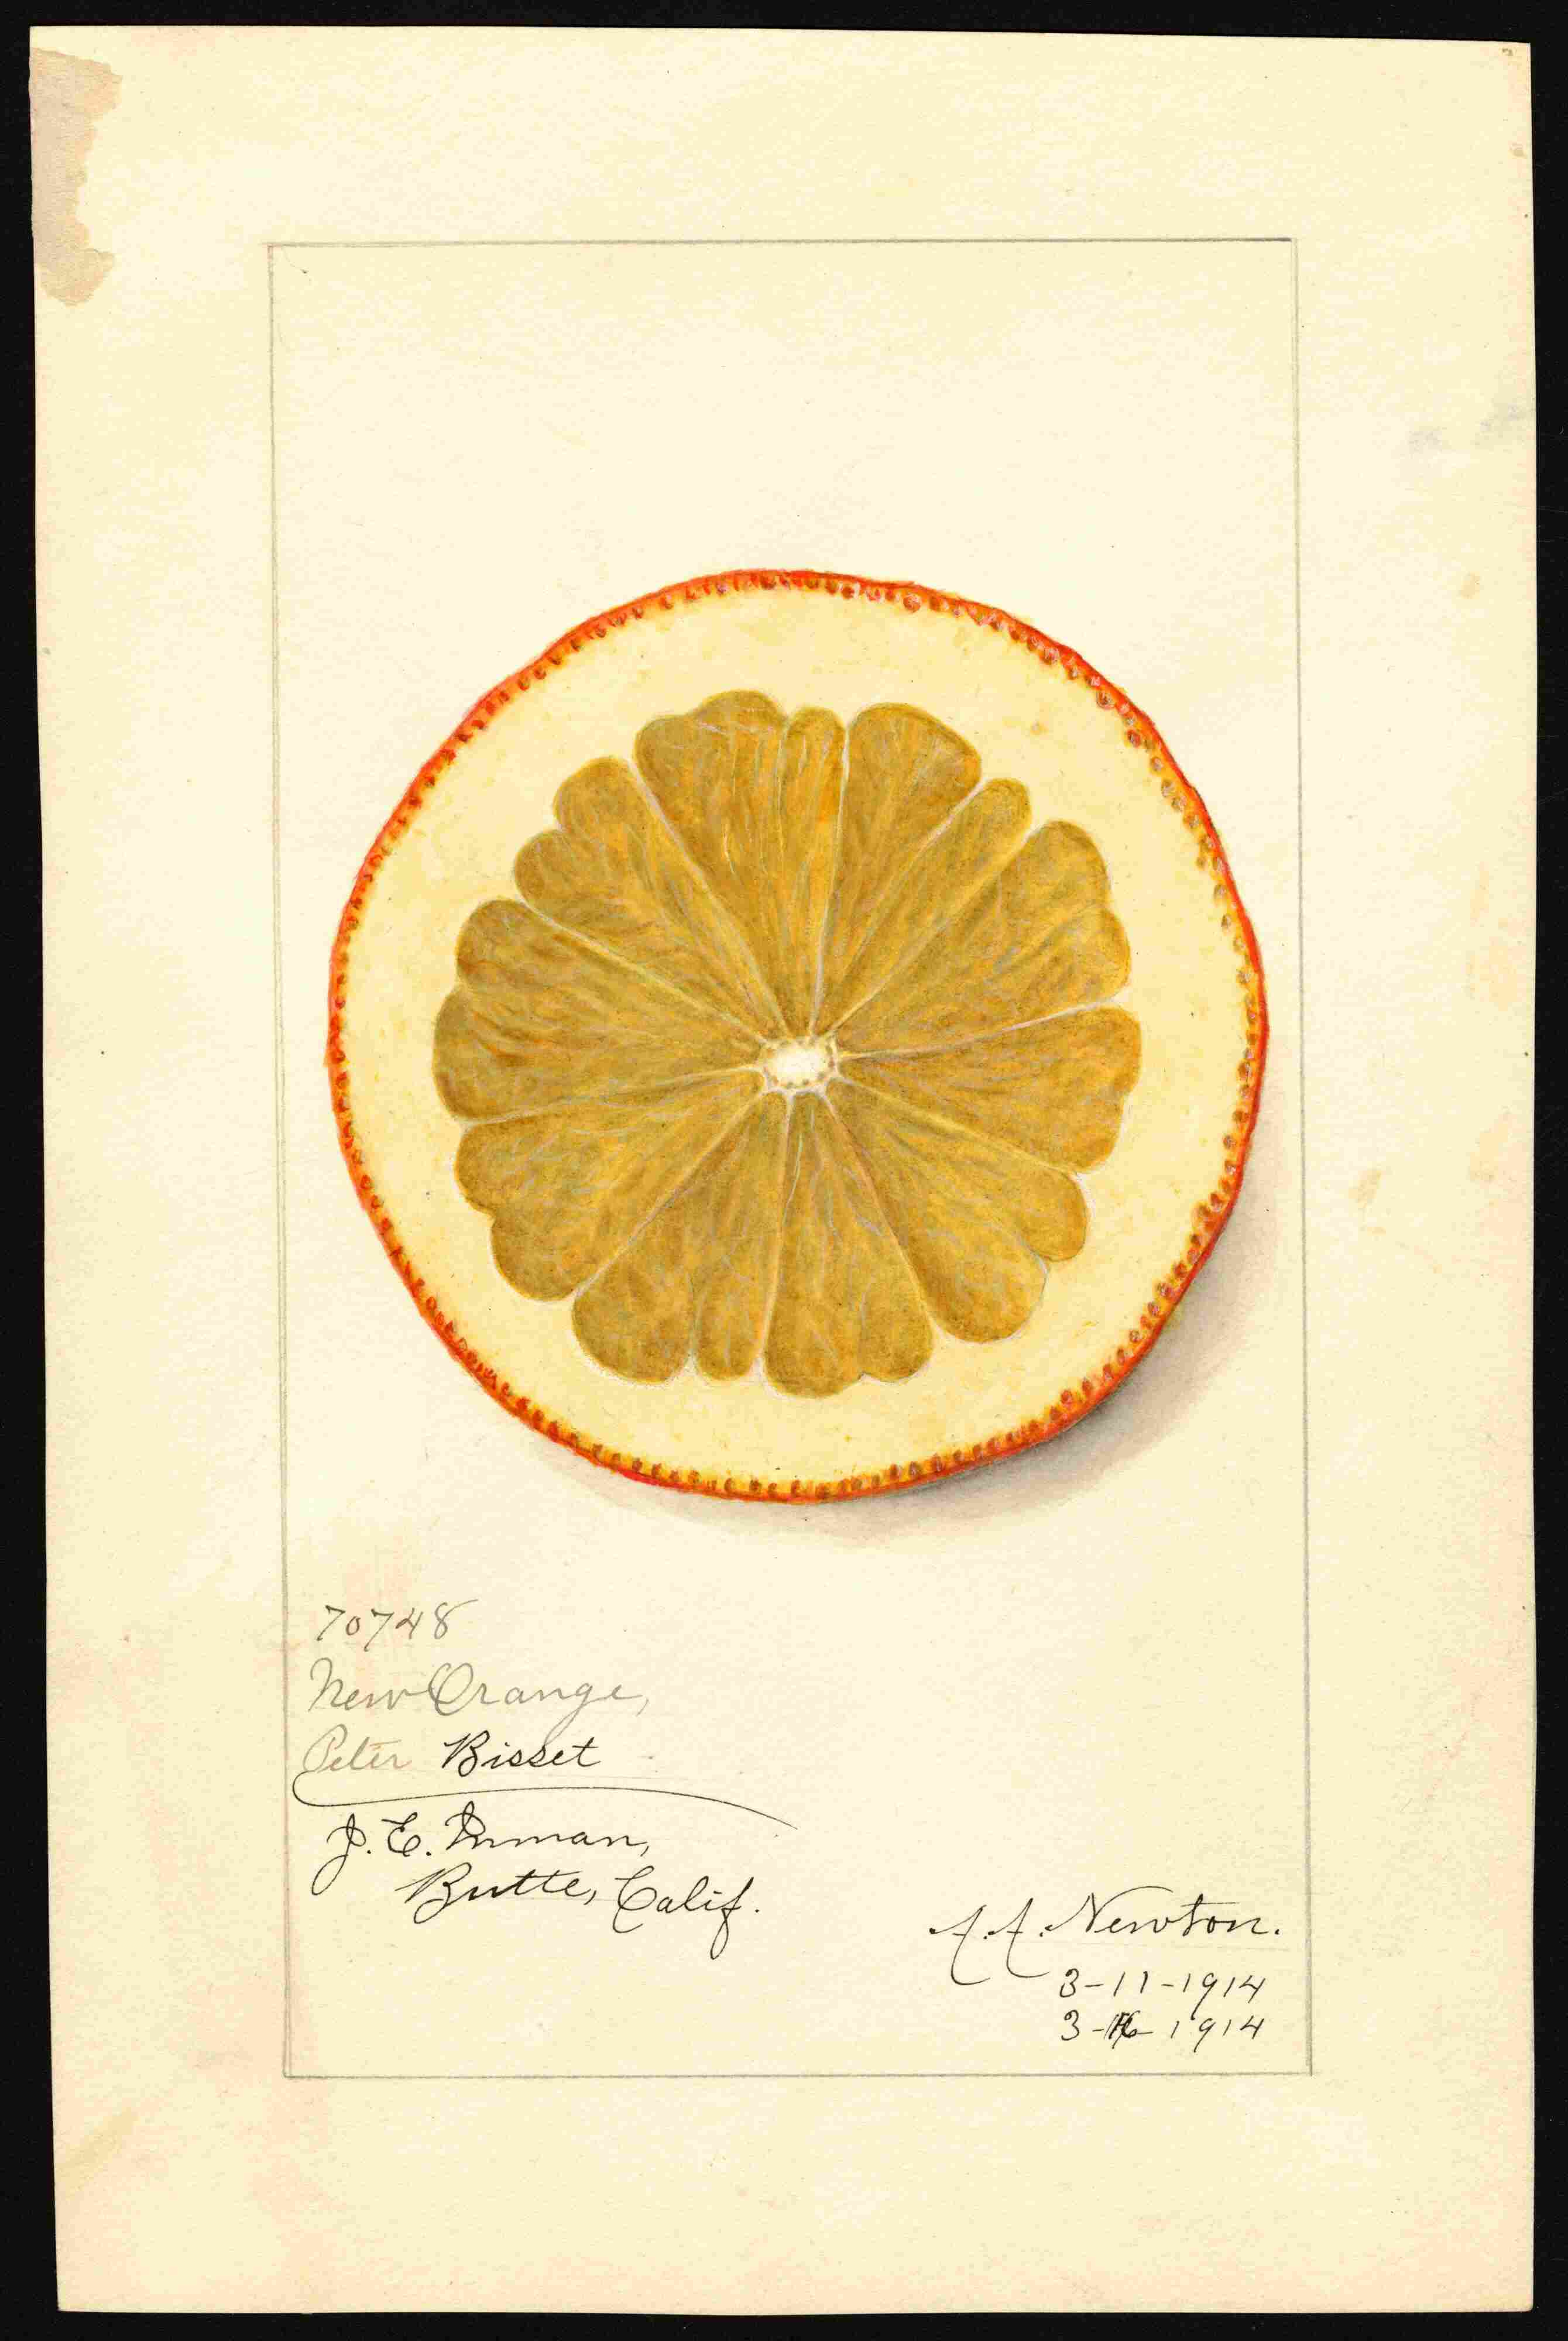 70748
New Orange,
Peter Bisset
J. E. Inman,
Butte, Calif.
A. A. Newton.
3-11-1914
3-16-1914